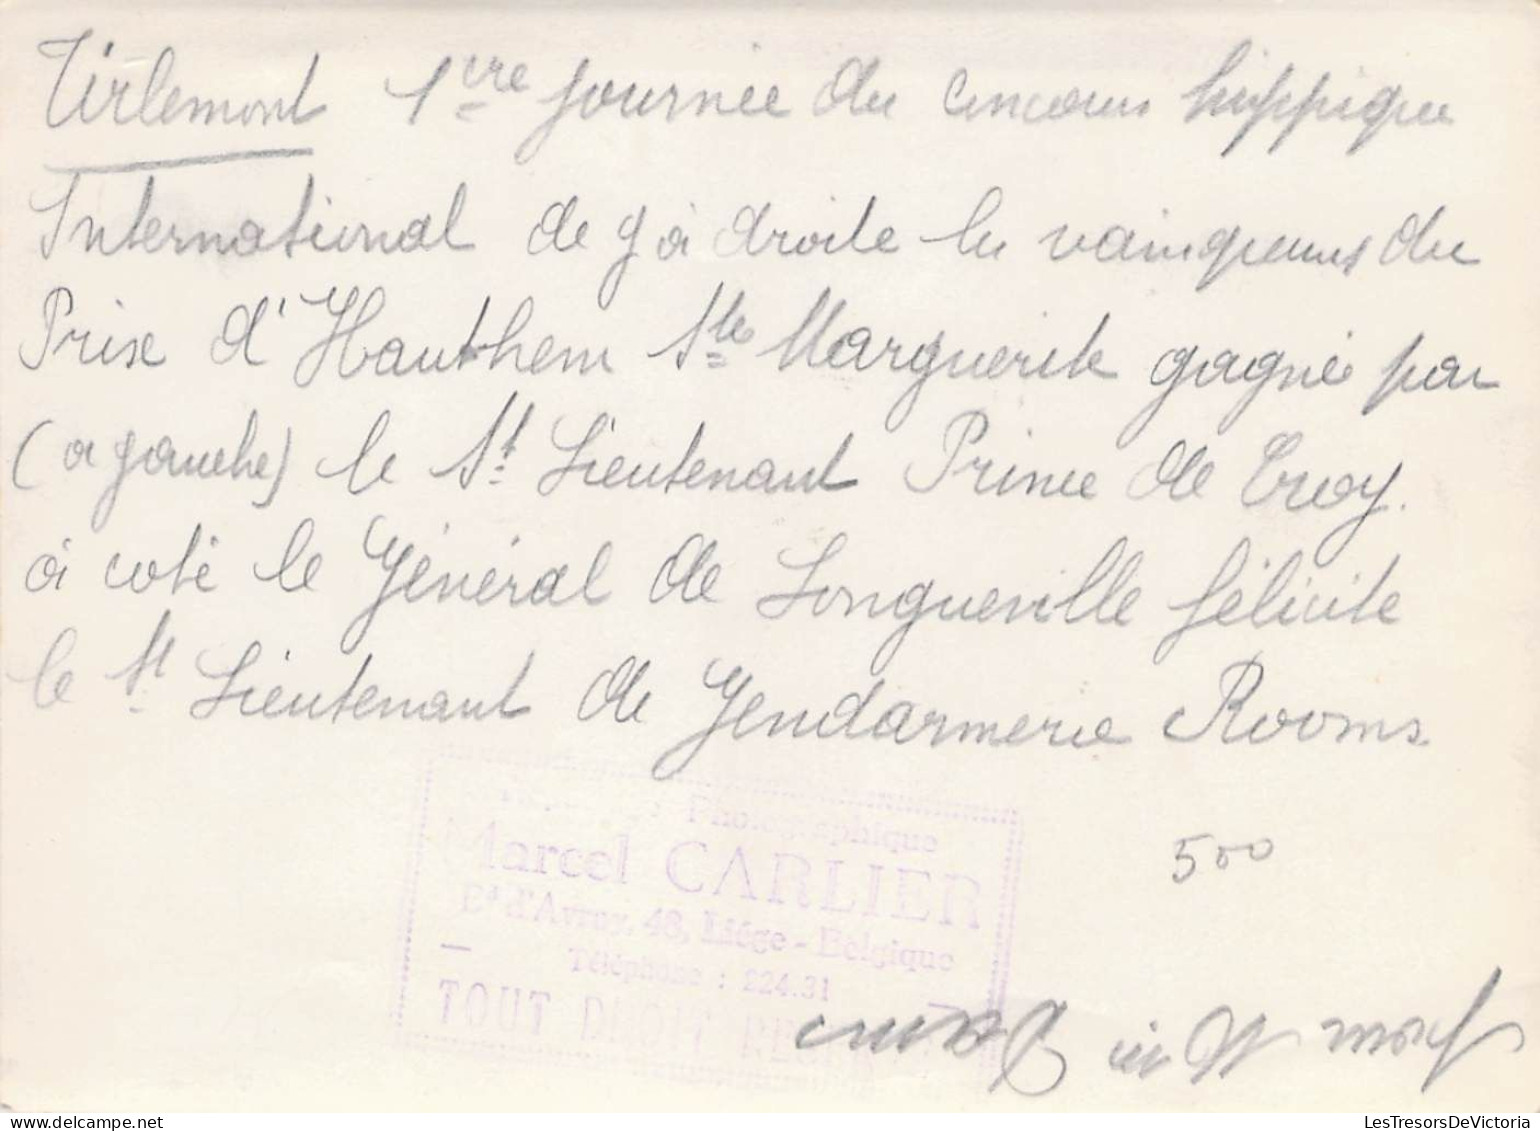 Tirlemont 1ère journée du concours hippique
International de g à droite les vainqueurs du
Prix d'Hauthem Ste Marguerite gagné par
(à gauche) le St. Lieutenant Prince de Croy.
à coté le Général de Longueville félicite
le St. Lieutenant de Gendarmerie Rooms
Photographique
Marcel CARLIER
Bd d'Avroy, 48, Liége - Belgique
Téléphone : 224.31
TOUT DROIT
500
LesTresorsDeVictoria